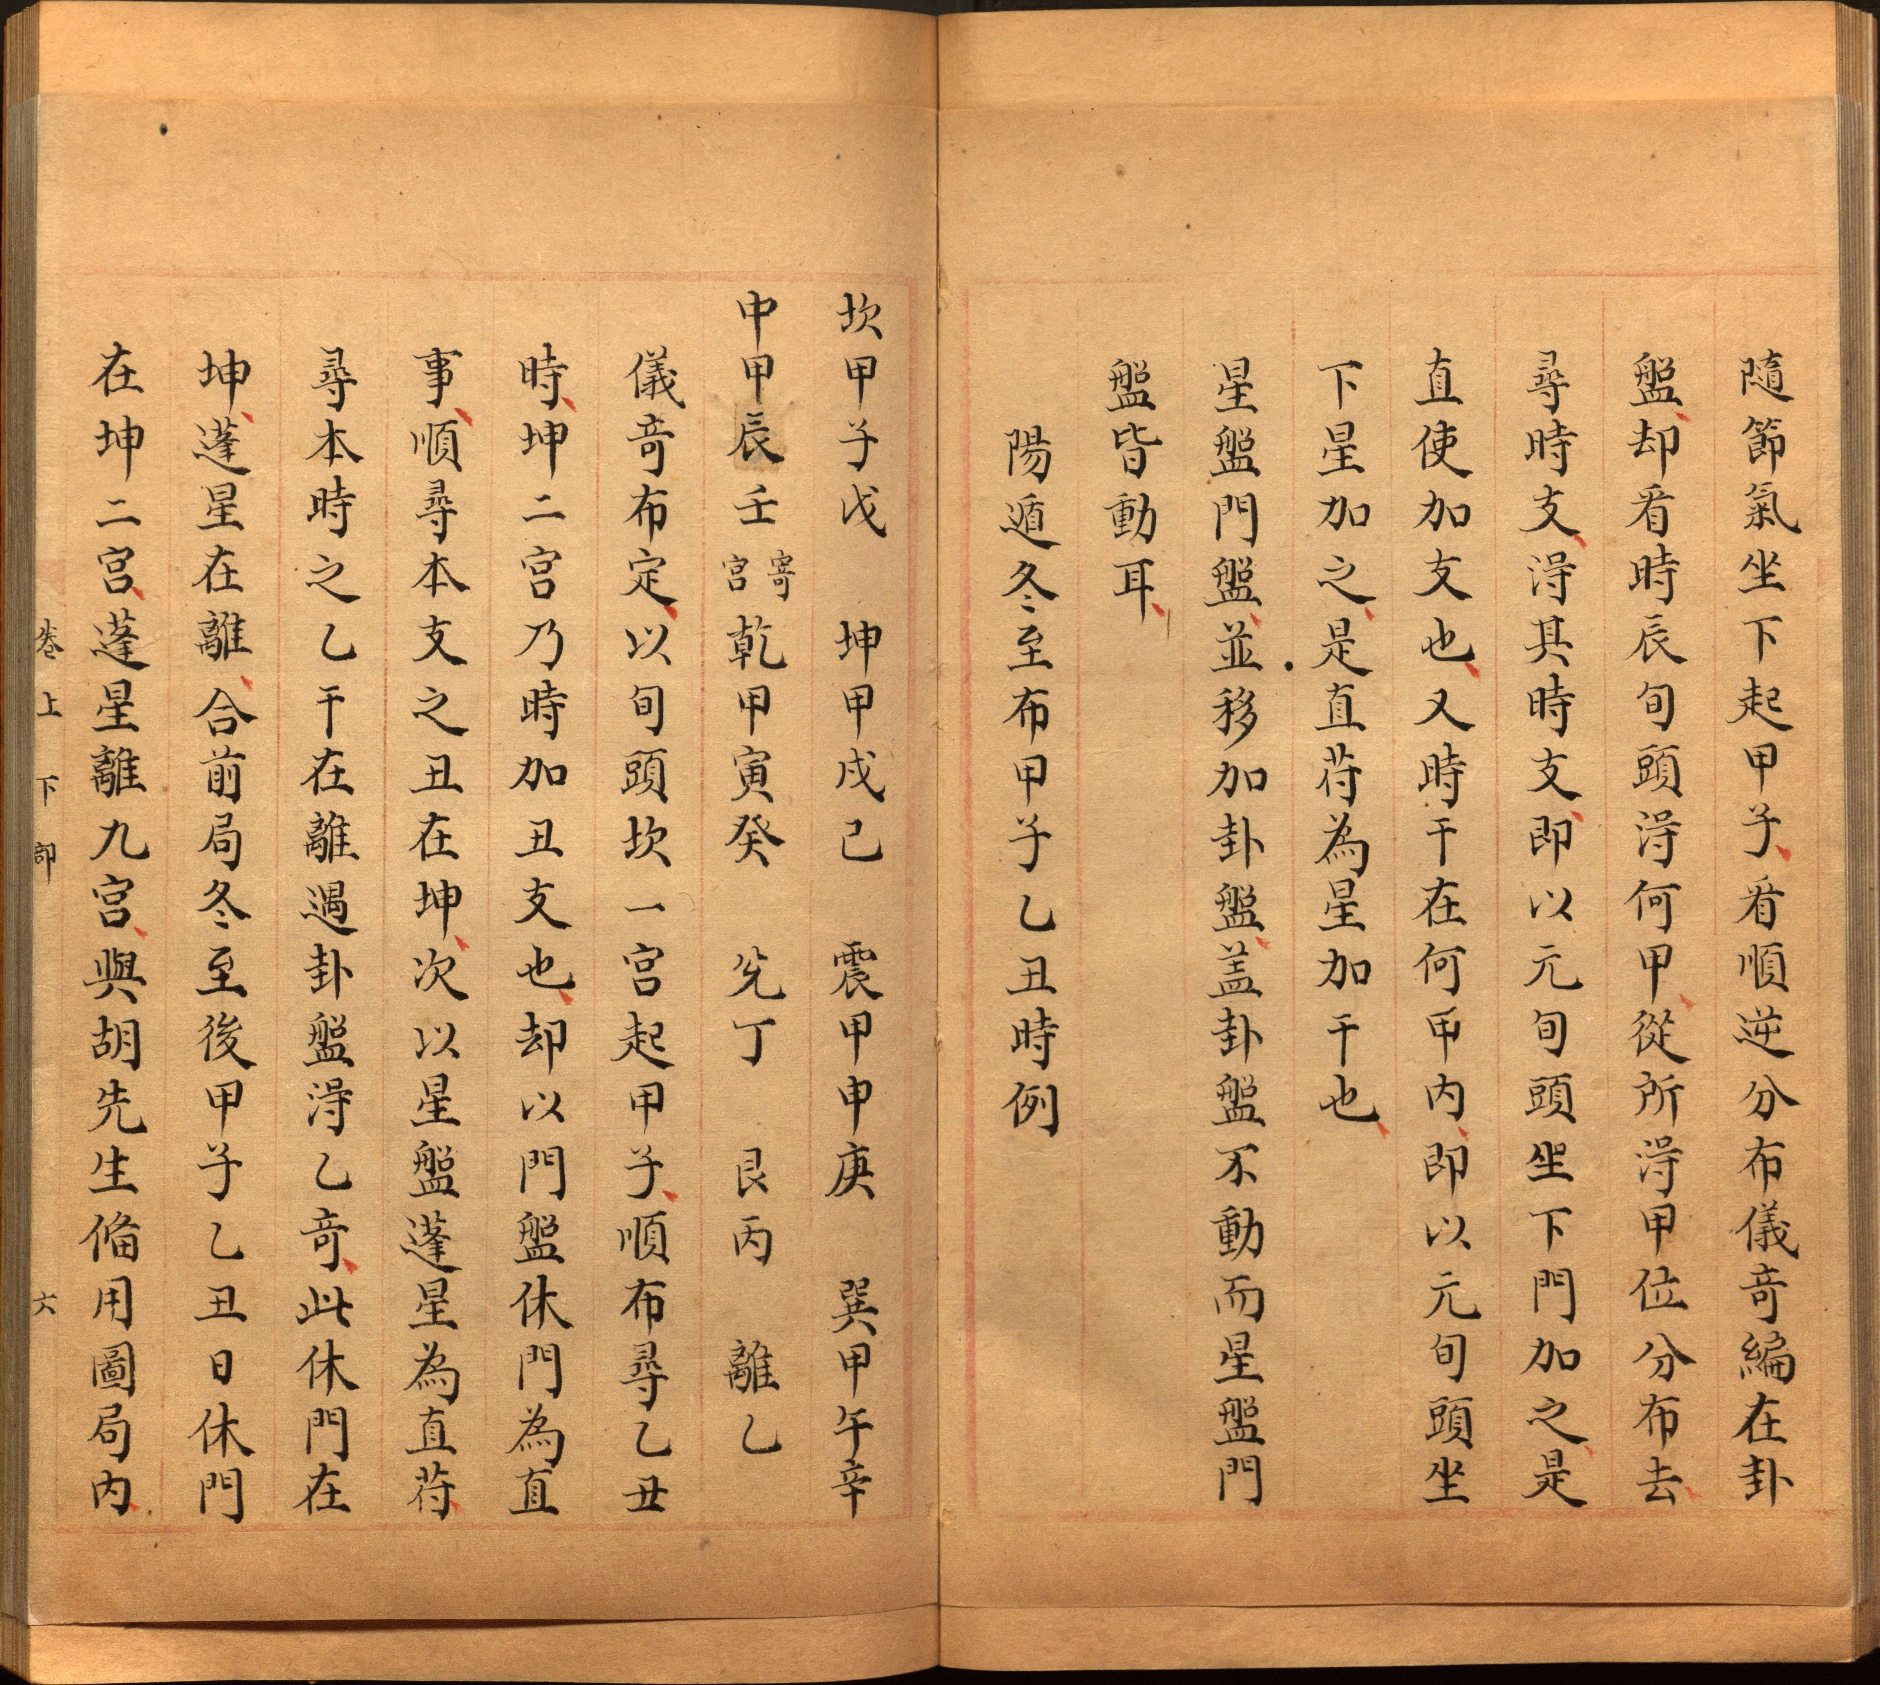 隨節氣坐下起甲子看順逆分布儀竒編在卦
盤却看時辰旬頭淂何甲從所淂甲位分布去
尋時支淂其時支即以元旬頭坐下門加之是
直使加支也又時干在何甲内即以元旬頭坐
下星加之是直苻為星加干也
星盤門盤並移加卦盤盖卦盤不動而星盤門
盤皆動耳
陽遁冬至布甲子乙丑時例
坎甲子戊　坤甲戌己　震甲申庚　巽甲午辛
中甲辰壬寄宫乾甲寅癸　兊丁　艮丙　離乙
儀竒布定以旬頭坎一宫起甲子順布尋乙丑
時坤二宫乃時加丑支也却以門盤休門為直
事順尋本支之丑在坤次以星盤蓬星為直苻
尋本時之乙干在離遇卦盤淂乙竒此休門在
坤蓬星在離合前局冬至後甲子乙丑日休門
在坤二宫蓬星離九宫與胡先生俻用圖局内
卷上下部　六